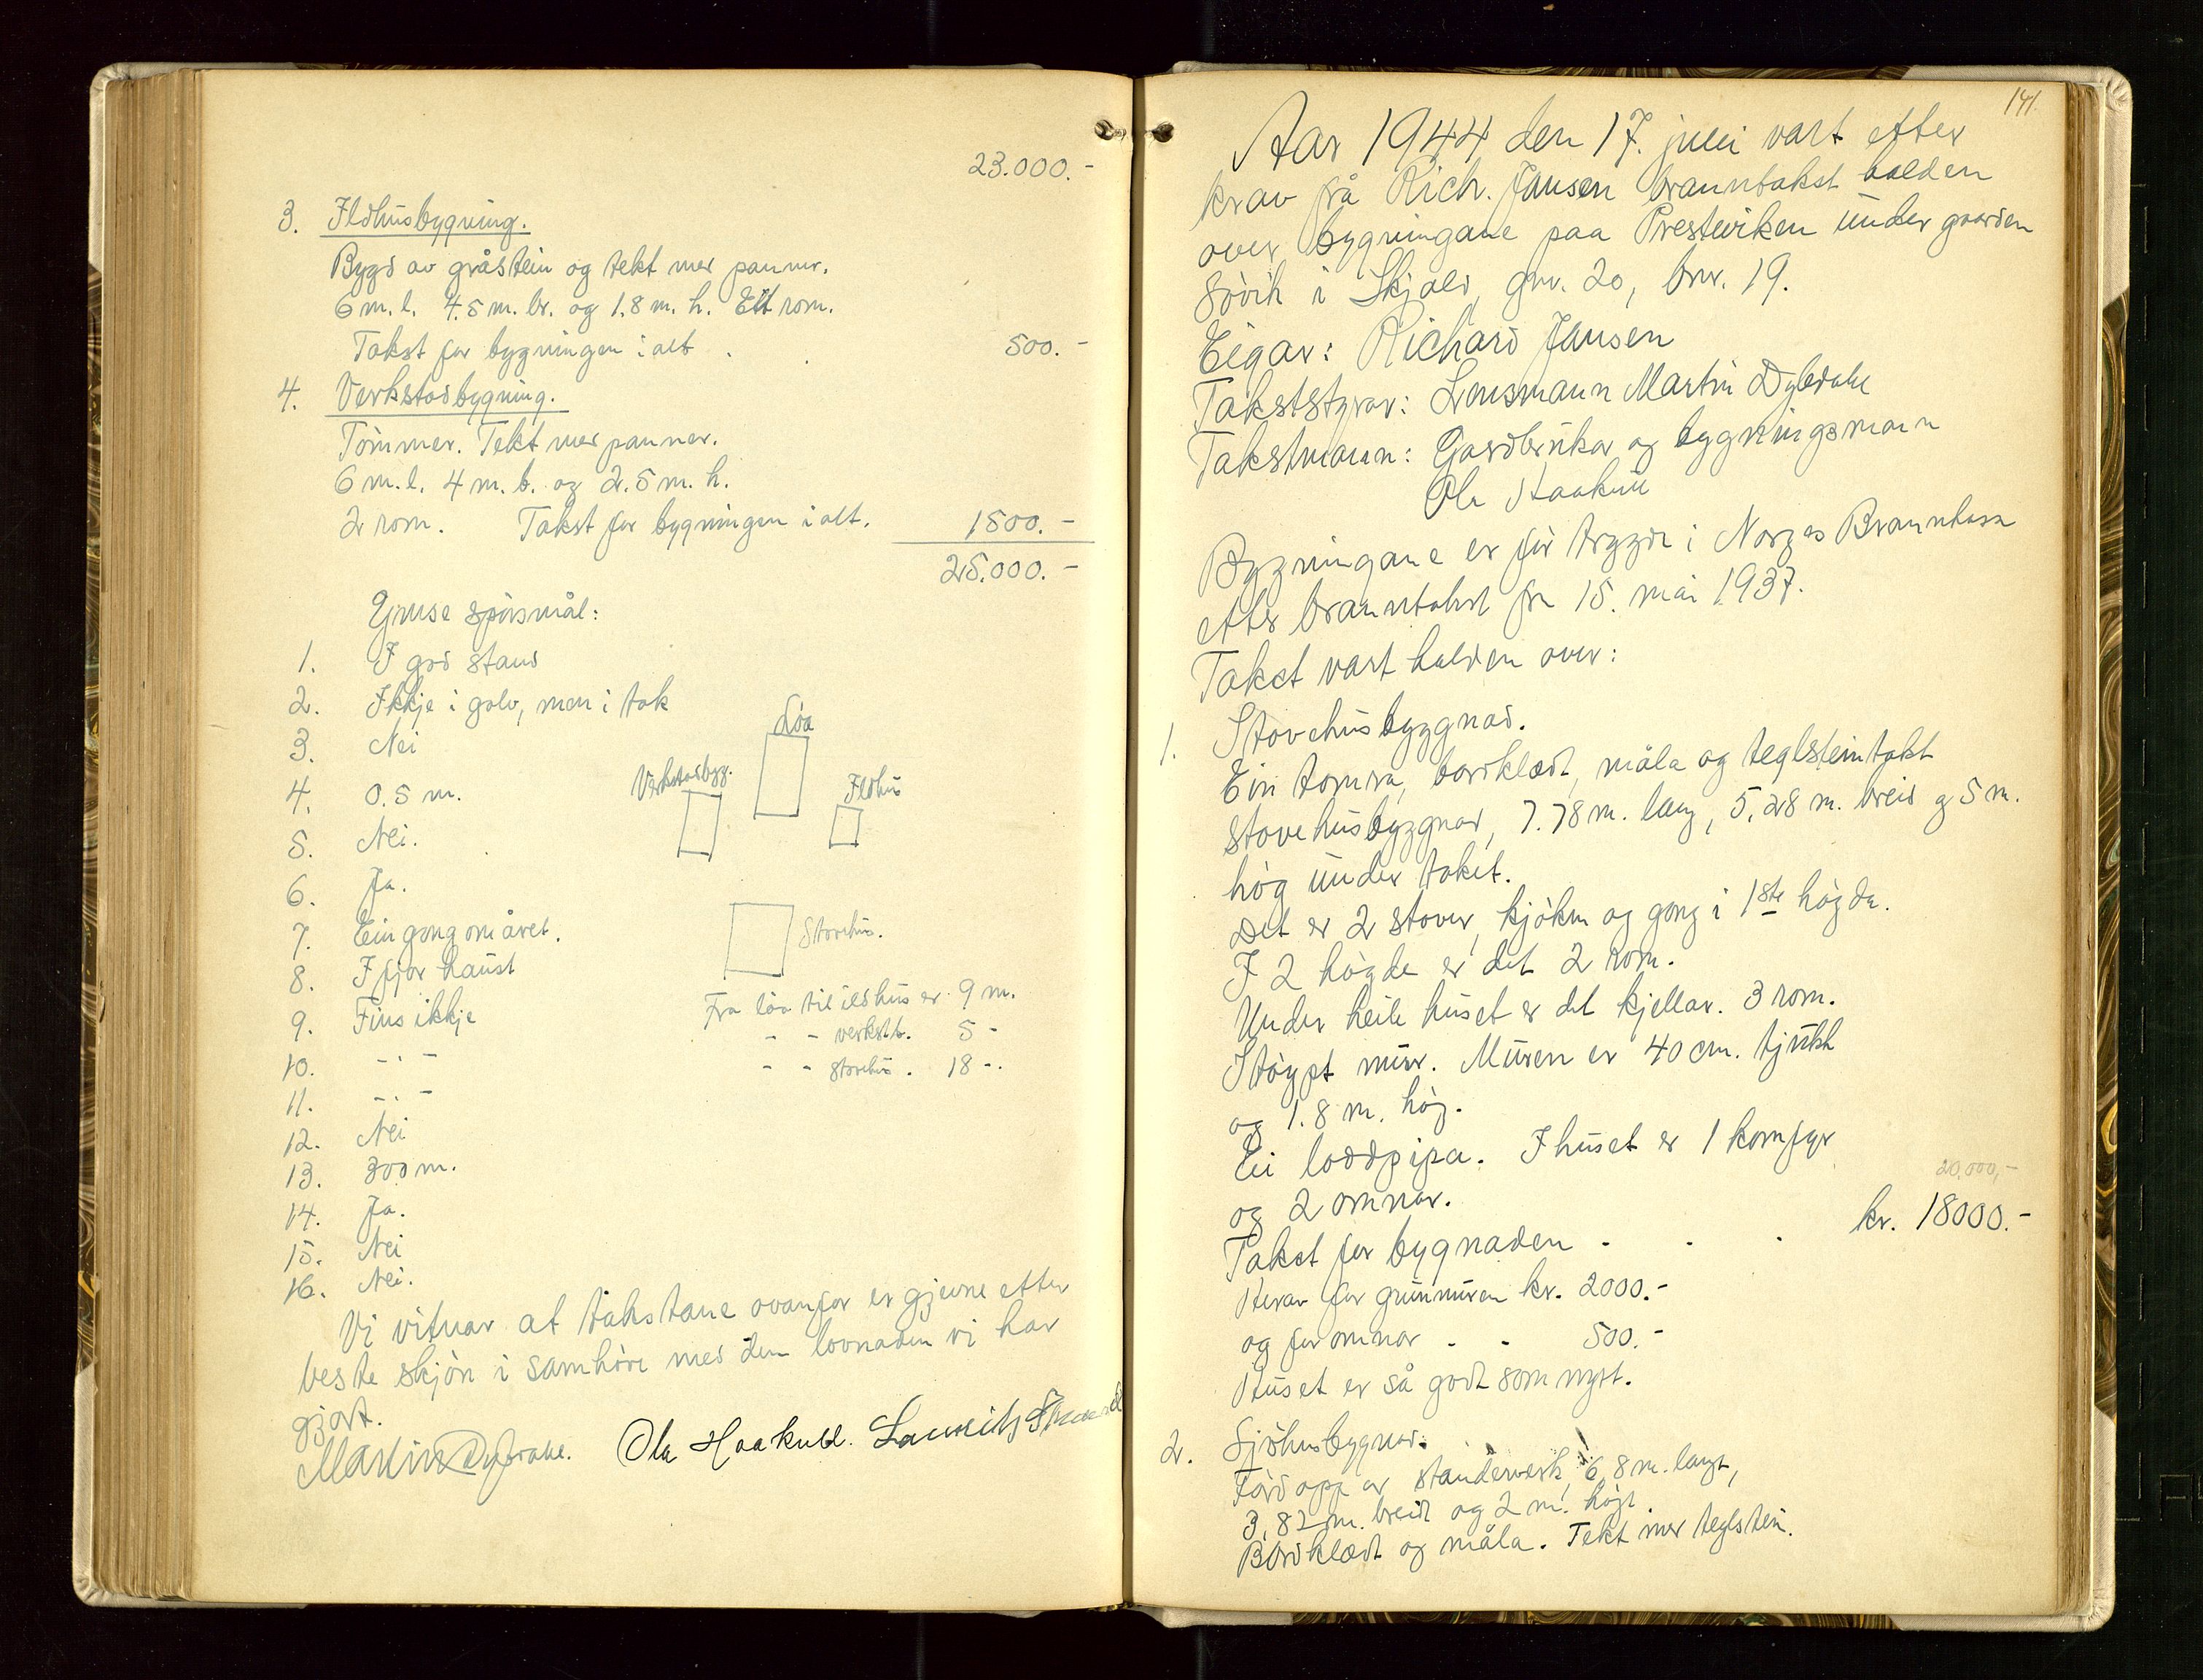 23.000.-
3. Ildhusbygning.
Bygd av gråstein og tekt med panner.
6 m. l. 4.5 m. br. og 1.8 m. h. Ett rom.
Takst for bygningen i alt . . 500.-
4. Verkstadbygning.
Tømmer. Tekt med panner.
6 m. l. 4 m. b. og 2.5 m. h.
2 rom. Takst for bygningen i alt. 1500.-
25.000.-
Ymse spørsmål:
1. I god stand
2. Ikkje i golv, men i tak
3. Nei
4. 0.5 m.
5. Nei.
6. Ja.
7. Ein gong om året.
8. I fjor haust
9. Fins ikkje
10. -.-
11. -.-
12. Nei
13. 300 m.
14. Ja.
15. Nei
16. Nei.
Løa
Verkstadbygg.
Ildhus
Stovehus.
Fra løa til ildhus er 9 m.
- - verkstb. 5 -
- - stovehus . 18 -.
Vi vitnar at takstane ovanfor er gjevne etter
beste skjøn i samhøve med den lovnaden vi har
gjort.
Martin Dybdahl. Ola Haakull. Lauritz
141.
Aar 1944 den 17. juli vart etter
krav frå Rich. Jansen branntakst halden
over bygningane paa Prestviken under gaarden
Søvik i Skjold, gnr. 20, bnr. 19.
Eigar: Richard Jansen
Takststyrar: Lensmann Martin Dybdahl
Takstmann: Gardbrukar og bygningsmann
Ola Haakull
Bygningane er før trygda i Norges Brannkasse
etter branntakst fra 15. mai 1937.
Takst vart halden over:
1. Stovehusbyggnad.
Ein tømra, bordklædt, måla og teglsteintekt
stovehusbyggnad, 7.78 m. lang, 5,28 m. breid og 5 m.
høg under taket.
Det er 2 stover, kjøken og gang i 1ste høgda.
I 2 høgde er det 2 rom.
Under heile huset er det kjellar. 3 rom.
Støypt mur. Muren er 40 cm. tjukk
og 1.8 m. høg.
Ei loddpipa. I huset er 1 komfyr
og 2 omnar.
20.000,-
Takst for bygnaden . . . kr. 18000.-
Herav for grunmuren kr. 2000.-
og for omnar - - 500.-
Huset er så godt som nytt.
2. Sjøhusbygnad.
Førd opp av standerverk, 6,8 m. langt,
3,82 m. breidt og 2 m. høgt.
Bordklædt og måla. Tekt med teglstein.